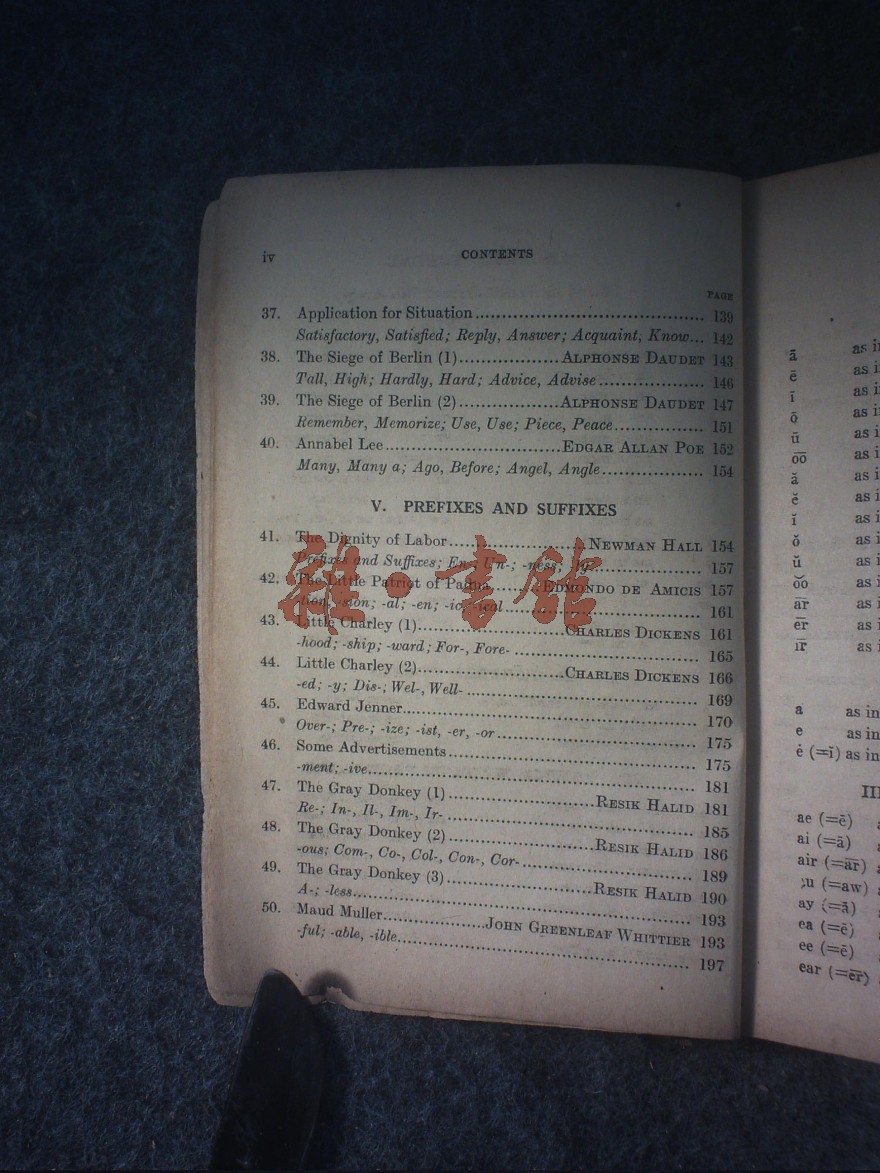 iv CONTENTS
PAGE
37. Application for Situation........................................ 139
Satisfactory, Satisfied; Reply, Answer; Acquaint, Know... 142
38. The Siege of Berlin (1)..................ALPHONSE DAUDET 143
Tall, High; Hardly, Hard; Advice, Advise................... 146
39. The Siege of Berlin (2)..................ALPHONSE DAUDET 147
Remember, Memorize; Use, Use; Piece, Peace................ 151
40. Annabel Lee..............................EDGAR ALLAN POE 152
Many, Many a; Ago, Before; Angel, Angle.................. 154
V. PREFIXES AND SUFFIXES
41. The Dignity of Labor........................NEWMAN HALL 154
Prefixes and Suffixes; En-; Un-; -ness; -ly.................. 157
42. The Little Patriot of Padua.........EDMONDO DE AMICIS 157
-tion, -sion; -al; -en; -ic, -ical.............................. 161
43. Little Charley (1)..........................CHARLES DICKENS 161
-hood; -ship; -ward; For-, Fore-................................ 165
44. Little Charley (2)..........................CHARLES DICKENS 166
-ed; -y; Dis-; Wel-, Well-....................................... 169
45. Edward Jenner.................................................... 170
Over-; Pre-; -ize; -ist, -er, -or.................................. 175
46. Some Advertisements........................................... 175
-ment; -ive......................................................... 181
47. The Gray Donkey (1)..........................RESIK HALID 181
Re-; In-, Il-, Im-, Ir-........................................... 185
48. The Gray Donkey (2)..........................RESIK HALID 186
-ous; Com-, Co-, Col-, Con-, Cor-.............................. 189
49. The Gray Donkey (3)..........................RESIK HALID 190
A-; -less............................................................ 193
50. Maud Muller..................JOHN GREENLEAF WHITTIER 193
-ful; -able, -ible.................................................. 197
雜·書館
ā as in
ē as i
ī as i
ō as i
ū as i
o͞o as i
ă as i
ĕ as i
ĭ as i
ŏ as i
ŭ as i
o͝o as i
a͞r as i
e͞r as i
i͞r as i
a as in
e as in
ė (=ĭ) as in
III
ae (=ē)
ai (=ā)
air (=a͞r)
au (=aw)
ay (=ā)
ea (=ē)
ee (=ē)
ear (=e͞r)